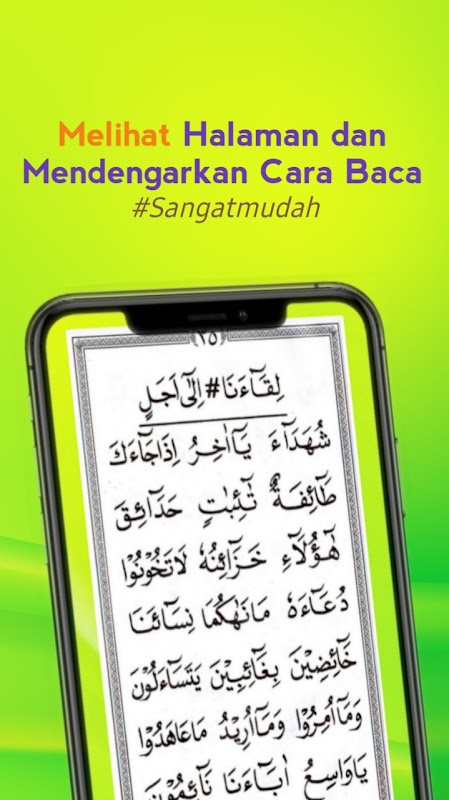 Melihat Halaman dan
Mendengarkan Cara Baca
#Sangatmudah
٣٥
لِقَآءَنَا # اِلٰٓى اَجَلٍ
شُهَدَآءَ يَآاٰخِرُ اِذَاجَآءَكَ
طَآئِفَةٌ تَٰٓئِبٰتٍ حَدَآئِقَ
هٰٓؤُلَآءِ خَزَآئِنُهٗ لَاتَخُوْنُوْا
دُعَآءَهٗ مَانَهٰىكُمَا نِسَآئَنَا
خَآئِضِيْنَ بِغَآئِبِيْنَ يَتَسَآءَلُوْنَ
وَمَآاُمِرُوْا وَمَآاُرِيْدُ مَاعَاهَدُوْا
يَاوَاسِعُ اٰبَآءَنَا نَآئِمُوْنَ